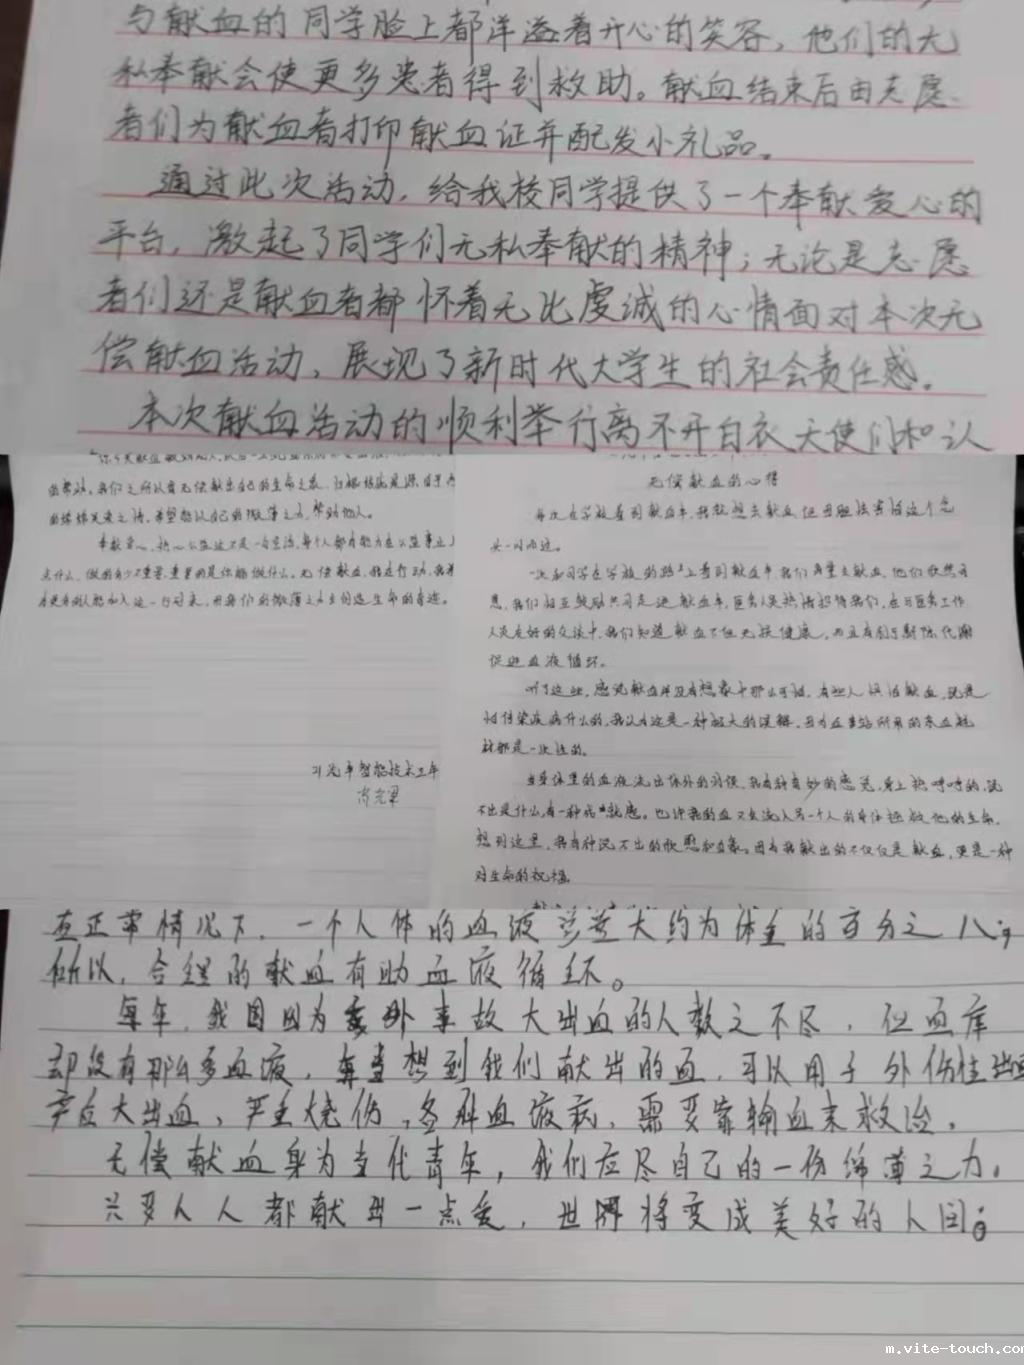 与献血的同学脸上都洋溢着开心的笑容，他们的大
私奉献会使更多患者得到救助。献血结束后由志愿
者们为献血者打印献血证并配发小礼品。
通过此次活动，给我校同学提供了一个奉献爱心的
平台，激起了同学们无私奉献的精神；无论是志愿
者们还是献血者都怀着无比虔诚的心情面对本次无
偿献血活动，展现了新时代大学生的社会责任感。
本次献血活动的顺利举行离不开白衣天使们和认
的帮助，我们之所以有无偿献出自己的生命之表，归根结底是源自于
的情，希望能以自己的微薄之力，帮助他人。
奉献爱心，热心公益这不是一句空话，每个人都有能力在公益事业
点什么，做的多少不重要，重要的是你能做什么。无偿献血，我在行动，我
有更多的人能加入这一行列来，用我们的微薄之力去创造生命的奇迹。
21汽车智能技术三年
无偿献血的心得
每次在学校看到献血车，我就想去献血，但因胆怯害怕这个念
头一闪而过。
一次和同学在学校的路上看到献血车，我们再重去献血，他们欣然同
意，我们相互鼓励共同走进献血车，医务人员热情招待我们，在与医务工作
人员友好的交谈中，我们知道献血不但无损健康，而且有利于新陈代谢
促进血液循环。
听了这些，感觉献血并没有想象中那么可怕，有些人惧怕献血，说是
怕传染疾病什么的，我认为这是一种极大的误解，因为血站所用的采血耗
材都是一次性的。
当身体里的血液流出体外的时候，我有种奇妙的感觉，身上热呼呼的，说
不出是什么，有一种成就感。也许我的血又会流入另一个人的身体拯救他的生命，
想到这里，我有种说不出的欣慰和自豪。因为我献出的不仅仅是献血，更是一种
对生命的祝福。
在正常情况下，一个人体的血液总量大约为体重的百分之八，
所以，合理的献血有助血液循环。
每年，我国因为意外事故大出血的人数之不尽，但血库
却没有那么多血液，每当想到我们献出的血，可以用于外伤性出血
产后大出血，严重烧伤，各种血液病，需要靠输血来救治。
无偿献血身为当代青年，我们应尽自己的一份绵薄之力。
只要人人都献出一点爱，世界将变成美好的人间。
m.vite-touch.com